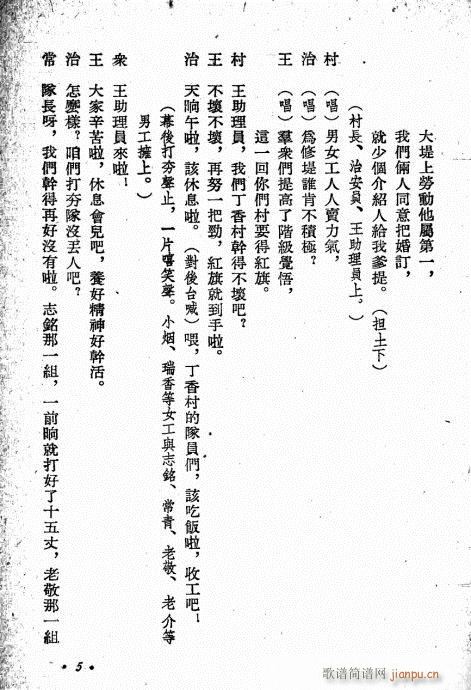 大堤上勞動他屬第一，
我們倆人同意把婚訂，
就少個介紹人給我爹提。（担土下）
（村長、治安員、王助理員上。）
村 （唱）男女工人人賣力氣，
治 （唱）爲修堤誰肯不積極？
王 （唱）羣衆們提高了階級覺悟，
這一回你們村要得紅旗。
村 王助理員，我們丁香村幹得不壞吧？
王 不壞不壞，再努一把勁，紅旗就到手啦。
治 天晌午啦，該休息啦。（對後台喊）喂，丁香村的隊員們，該吃飯啦，收工吧！
（幕後打夯聲止，一片嘻笑聲。小烟、瑞香等女工與志銘、常青、老敬、老介等
男工擁上。）
衆 王助理員來啦！
王 大家辛苦啦，休息會兒吧，養好精神好幹活。
治 怎麼樣？咱們打夯隊沒丟人吧？
常 隊長呀，我們幹得再好沒有啦。志銘那一組，一前晌就打好了十五丈，老敬那一組
·5·
歌谱简谱网
jianpu.cn